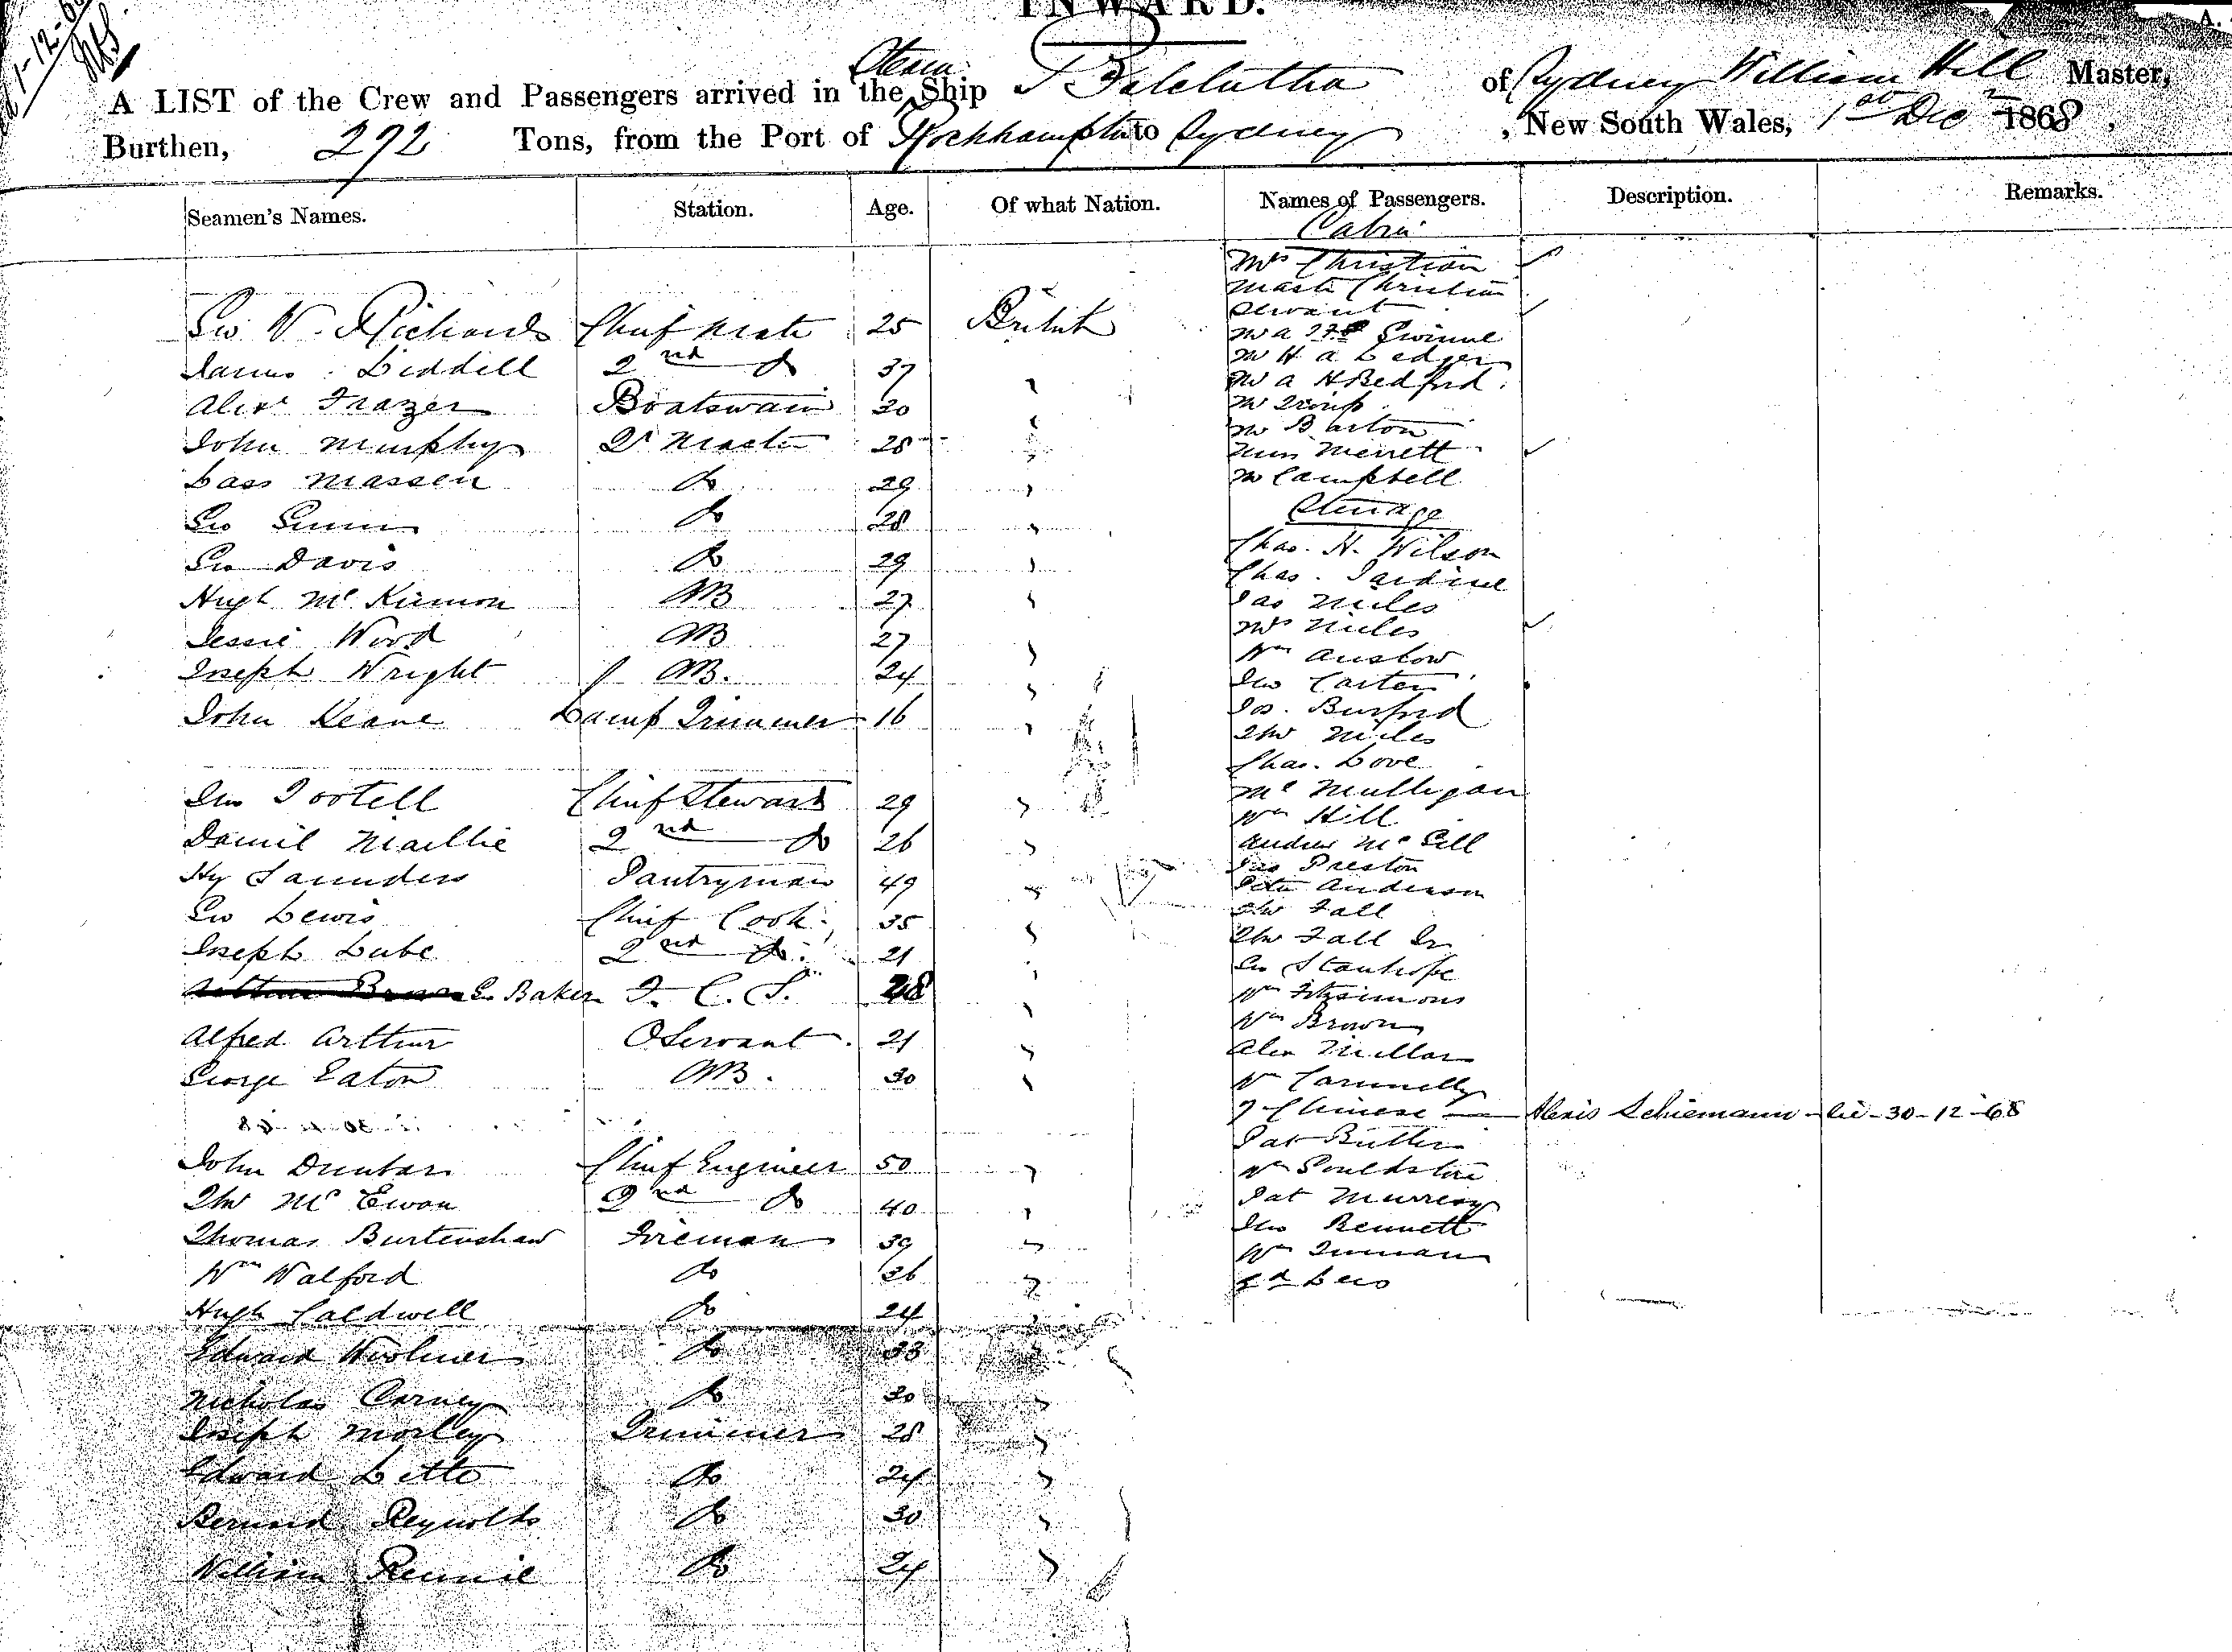 INWARD.
1-12-68
A LIST of the Crew and Passengers arrived in the Steam Ship Balclutha of Sydney William Hill Master,
Burthen, 292 Tons, from the Port of Rockhampton to Sydney, New South Wales, 1st Decr 1868,
Seamen's Names. Station. Age. Of what Nation. Names of Passengers. Description. Remarks.
Geo W. Richards Chief Mate 25 British
James Liddell 2nd Do 37
Alexr Frazer Boatswain 30
John Murphy Qr Master 28
Lass Massen Do 29
Geo Gunn Do 28
Geo Davis Do 29
Hugh McKinnon AB 27
Jessie Wood AB 27
Joseph Wright AB. 24
John Keane Lamp Trimmer 16
Jno Tootell Chief Steward 29
Daniel Maillie 2nd Do 26
Hy Saunders Pantryman 49
Geo Lewis Chief Cook 35
Joseph Lube 2nd Do. 21
G. Baker F. C. S. 28
Alfred Arthur O Servant 21
George Eaton AB. 30
John Dunbar Chief Engineer 50
Thos McEwan 2nd Do 40
Thomas Burtenshaw Fireman 39
Wm Walford Do 36
Hugh Caldwell Do 24
Edward Woolmer Do 33
Nicholas Carney Do 30
Joseph Morley Trimmer 28
Edward Letts Do 24
Bernard Reynolds Do 30
William Rennie Do 24
Cabin
Mrs Christian
Mastr Christian
Servant
Mr A Gwinne
Mr H A Ledger
Mr A H Bedford
Mr Troup
Mr Barton
Miss Merrett
Mr Campbell
Steerage
Chas. H. Wilson
Chas. Jardine
Jas Miles
Mrs Miles
Wm Anslow
Jno Carter
Jos. Burford
Thos Miles
Chas. Love
Mc Mulligan
Wm Hill
Andrew McGill
Jas Preston
Peter Anderson
Thos Fall
Thos Fall Jr
Geo Stanhope
Wm Fitzsimons
Wm Brown
Alex Millar
Wm Cammelly
7 Chinese — Alexis Schiemann - lre - 30-12-68
Pat Butler
Wm Gouldstone
Pat Murray
Jno Bennett
Wm Inman
Ed Lees